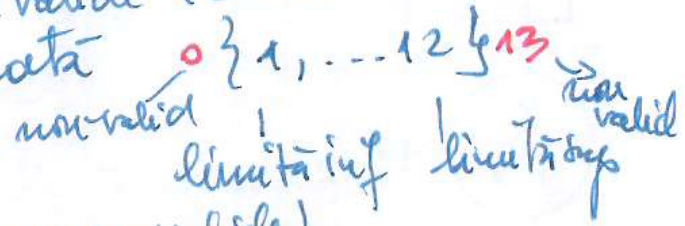 valide
ată 0 {1, ...12} 13
non-valid non valid
limită inf limită sup